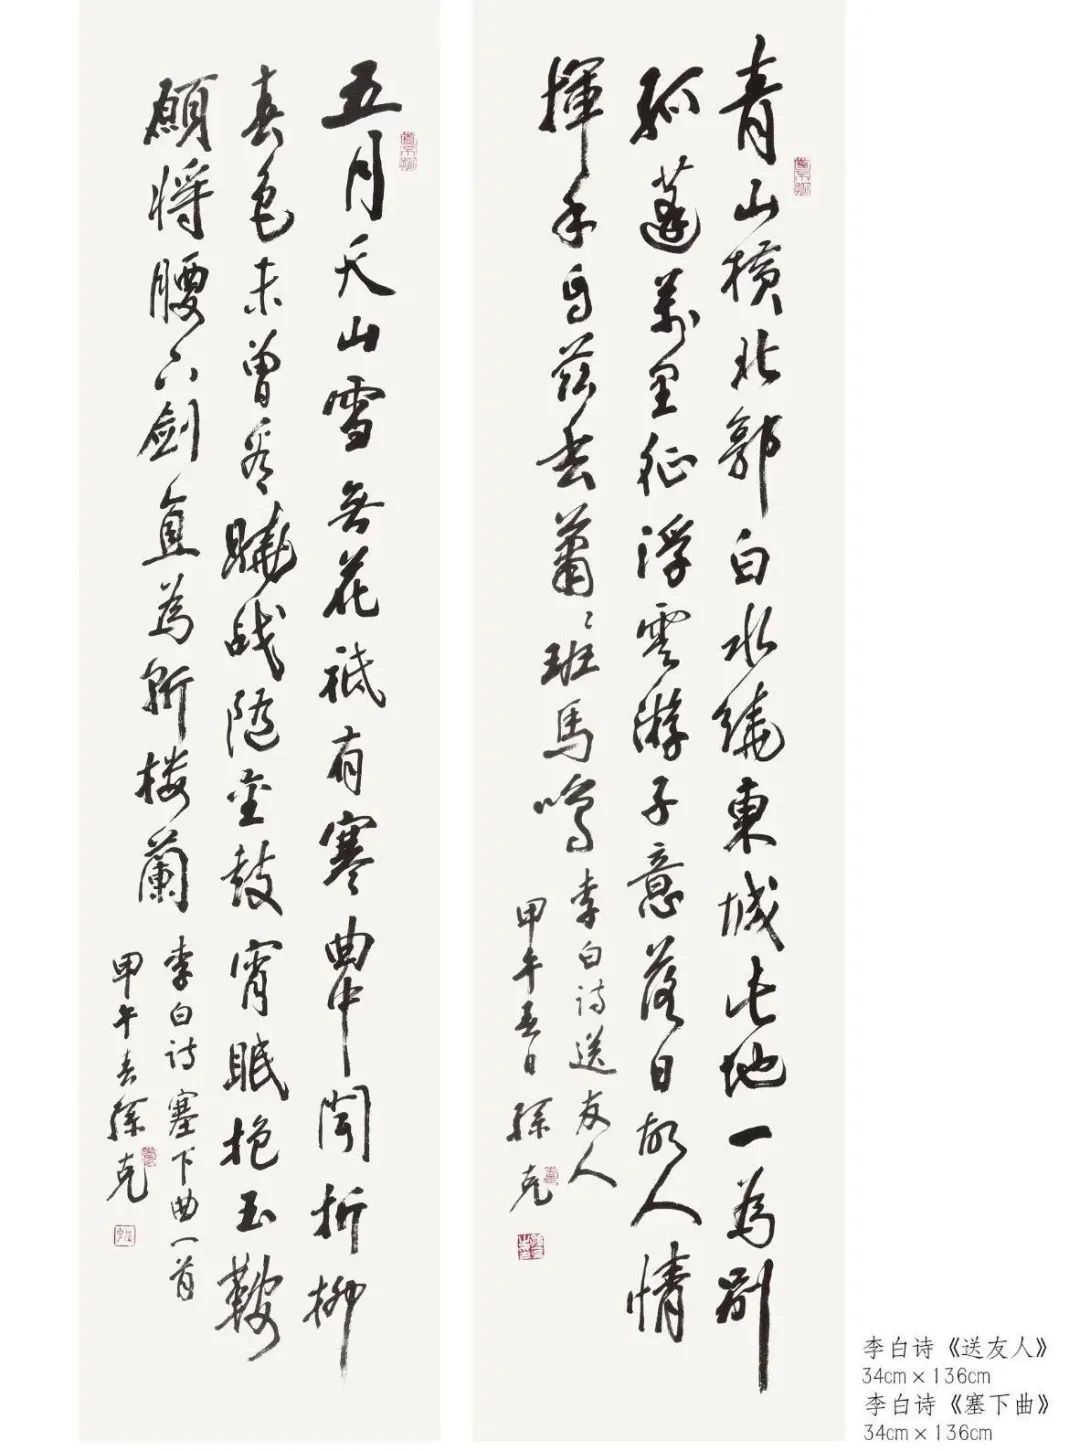 青山橫北郭白水繞東城此地一為別
孤蓬萬里征浮雲游子意落日故人情
揮手自茲去蕭〻班馬鳴
李白诗送友人
甲午春日孫克
五月天山雪無花祗有寒曲中闻折柳
春色未曾看曉战隨金鼓宵眠抱玉鞍
願將腰下剑直為斬楼蘭
李白诗塞下曲一首
甲午春孫克
李白诗《送友人》
34cm×136cm
李白诗《塞下曲》
34cm×136cm